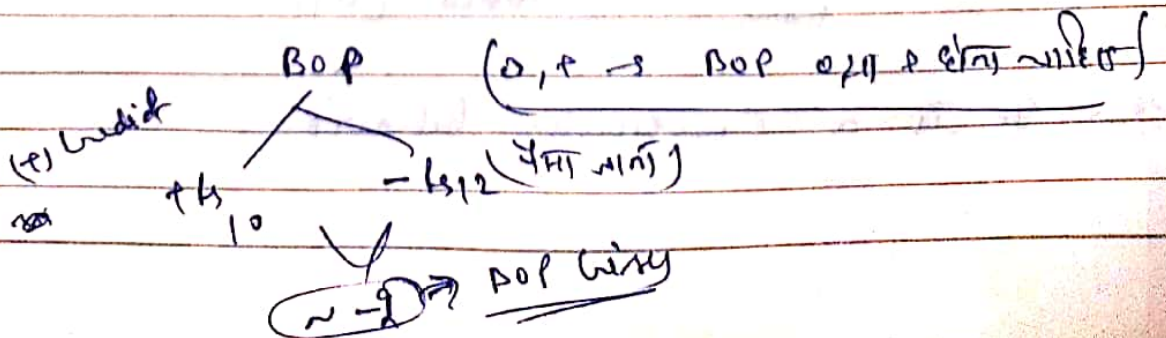 BOP (0, + → BOP या + होना चाहिए)
(+) Credit
+ Rs 10 - Rs 12 (पैसा जाना)
~ -2 → BOP Crisis